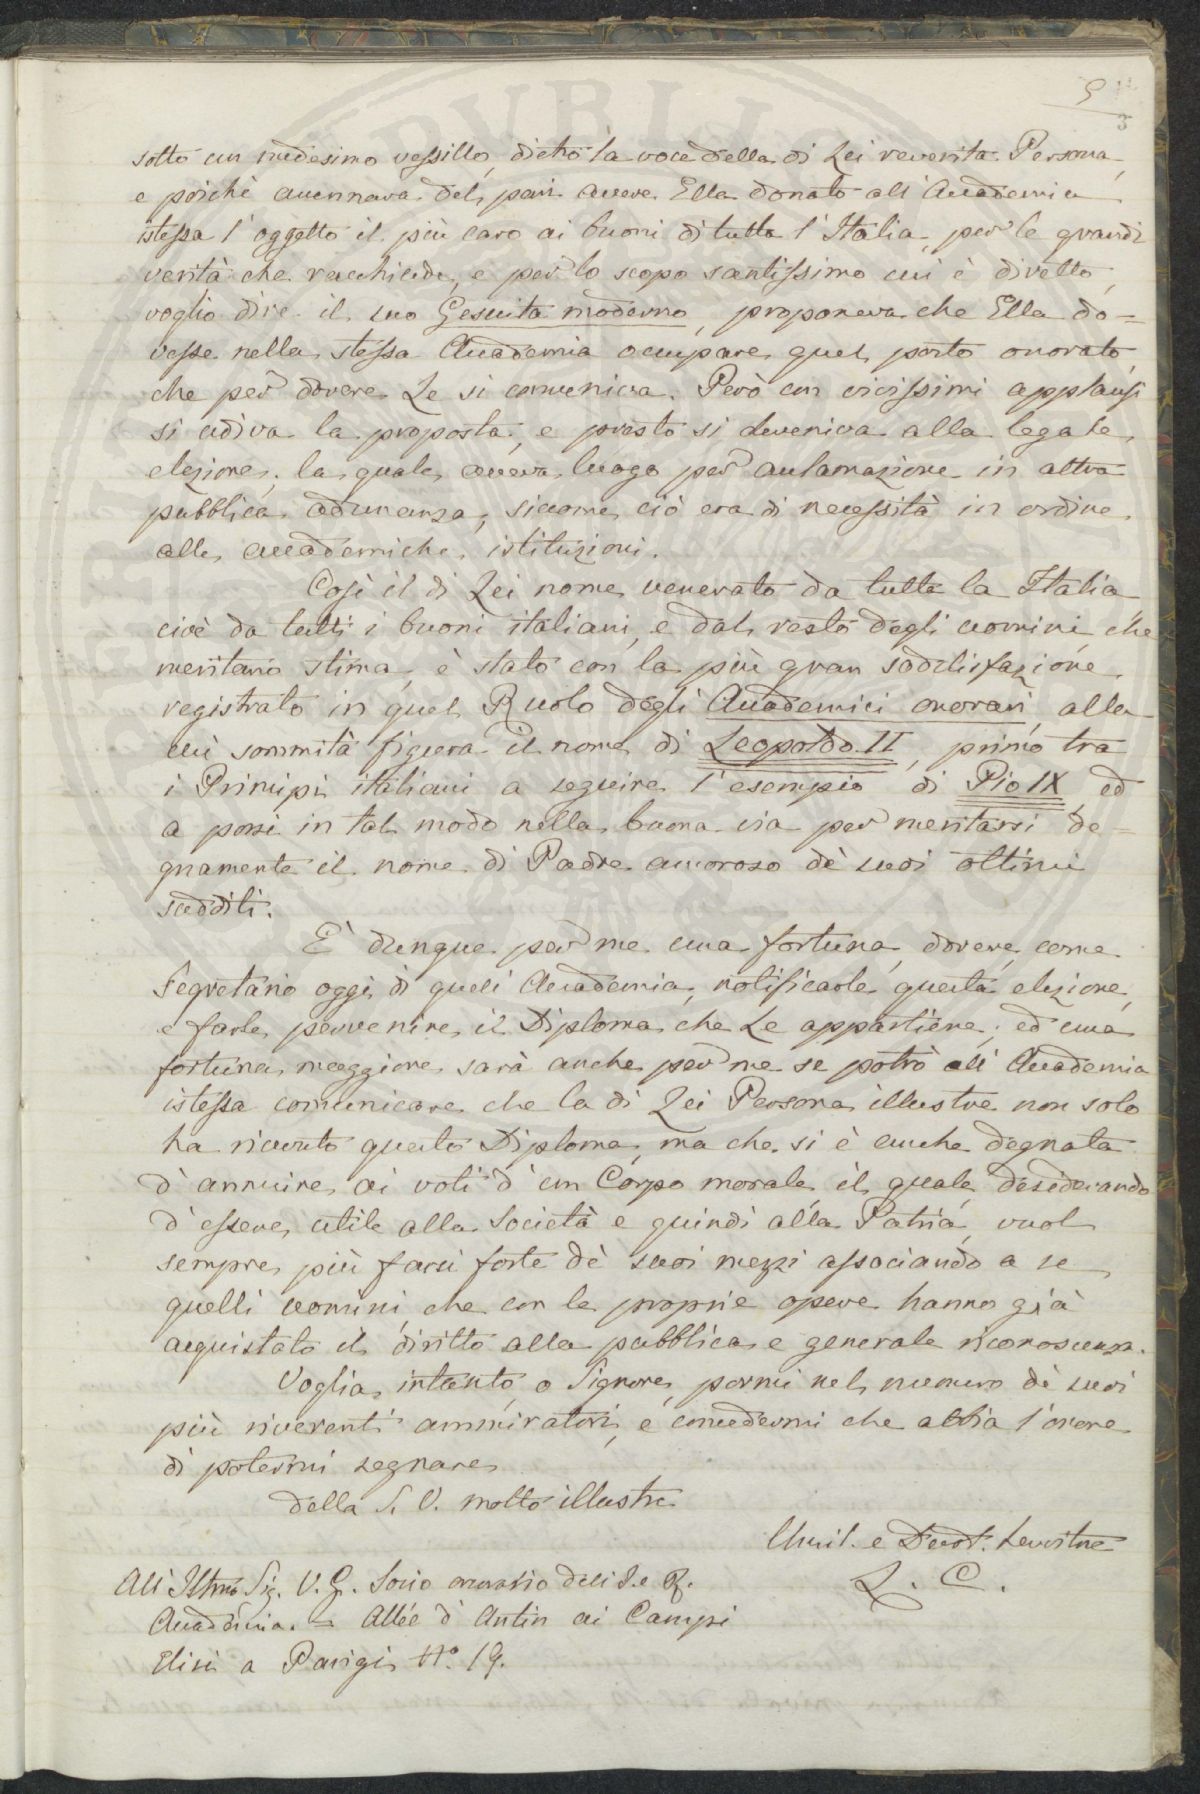 5
3
sotto un medesimo vessillo, dietro la voce della di Lei reverita Persona,
e poichè accennava del pari avere Ella donato all' Accademia
istessa l' oggetto il più caro ai buoni di tutta l' Italia, per le grandi
verità che racchiude, e per lo scopo santissimo cui è diretto,
voglio dire il suo Gesuita moderno, proponeva che Ella do=
vesse nella stessa Accademia occupare quel posto onorato,
che per dovere Le si conveniva. Però con vivissimi applausi
si udiva la proposta, e presto si deveniva alla legale
elezione; la quale aveva luogo per acclamazione in altra
pubblica adunanza, siccome ciò era di necessità in ordine
alle accademiche istituzioni.
Così il di Lei nome venerato da tutta la Italia
cioè da tutti i buoni italiani, e dal resto degli uomini che
meritano stima, è stato con la più gran soddisfazione
registrato in quel Ruolo degli Accademici onorari, alla
cui sommità figura il nome di Leopoldo II, primo tra
i Principi italiani a seguire l' esempio di Pio IX ed
a porsi in tal modo nella buona via per meritarsi de=
gnamente il nome di Padre amoroso dè suoi ottimi
sudditi.
È dunque per me una fortuna, dovere, come
Segretario oggi di quell' Accademia, notificarle questa elezione,
e farle pervenire il Diploma che Le appartiene; ed una
fortuna maggiore sarà anche per me se potrò all' Accademia
istessa comunicare che la di Lei Persona illustre non solo
ha ricevuto questo Diploma, ma che si è anche degnata
d' annuire ai voti d' un Corpo morale, il quale desiderando
d' essere utile alla Società e quindi alla Patria, vuol
sempre più farsi forte dè suoi mezzi associando a se
quelli uomini, che con le proprie opere hanno già
acquistato il diritto alla pubblica e generale riconoscenza.
Voglia intanto, o Signore, pormi nel numero dè suoi
più riverenti ammiratori, e concedermi che abbia l' onore
di potermi segnare
della S. V. molto illustre
Umil. e Devot. Servitore
L. C.
All' Illmo Sig. V. G. Socio onorario dell' I. e R.
Accademia. = Allée d' Antin ai Campi
Elisi a Parigi N.° 19.